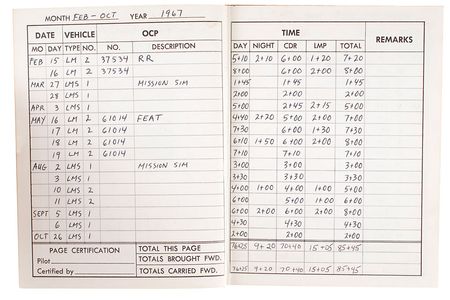 MONTH FEB - OCT YEAR 1967
DATE VEHICLE OCP
MO DAY TYPE NO. NO. DESCRIPTION
FEB 15 LM 2 37534 RR
16 LM 2 37534
MAR 27 LMS 1 MISSION SIM
28 LMS 1
APR 3 LMS 1
MAY 16 LM 2 61014 FEAT
17 LM 2 61014
18 LM 2 61014
19 LM 2 61014
AUG 2 LMS 1 MISSION SIM
3 LMS 1
10 LMS 2
11 LMS 2
SEPT 5 LMS 1
6 LMS 1
OCT 26 LMS 1
PAGE CERTIFICATION TOTAL THIS PAGE
Pilot TOTALS BROUGHT FWD.
Certified by TOTALS CARRIED FWD.
TIME REMARKS
DAY NIGHT CDR LMP TOTAL
5+10 2+10 6+00 1+20 7+20
8+00 6+00 2+00 8+00
1+45 1+45 1+45
2+00 2+00 2+00
5+00 2+45 2+15 5+00
4+40 2+20 5+00 2+00 7+00
7+30 6+00 1+30 7+30
6+10 1+50 6+00 2+00 8+00
7+10 7+10 7+10
3+00 3+00 3+00
3+30 3+30 3+30
4+00 1+00 4+00 1+00 5+00
6+00 5+00 1+00 6+00
6+00 2+00 6+00 2+00 8+00
4+30 4+30 4+30
2+00 2+00 2+00
76+25 9+20 70+40 15+05 85+45
76+25 9+20 70+40 15+05 85+45